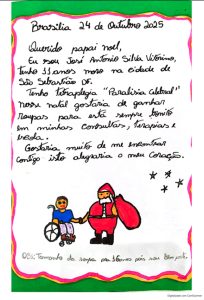 Brasília 24 de Outubro 2025
Querido papai noel,
Eu sou José Antonio Silva Vitorino,
tenho 11 anos moro na cidade de
São Sebastião DF.
Tenho tetraplegia "Paralisia Cerebral"
nesse natal gostaria de ganhar
roupas para está sempre bonito
em minhas consultas, terapias e
escola.
Gostaria muito de me encontrar
contigo isto alegraria o meu coração.
OBS: Tamanho da roupa